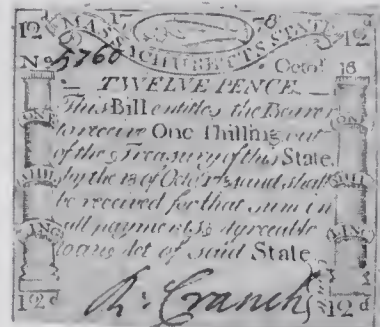 17 78
12d MASSACHUSETTS STATE 12d
No 5760 Octor. 18
TWELVE PENCE
This Bill entitles the Bearer
to receive One Shilling out
of the Treasury of this State,
by the of and shall
be received for that Sum in
all payments, agreeable
to an Act of said State.
ONE SHILLING
ONE SHILLING
12d R: Cranch 12d